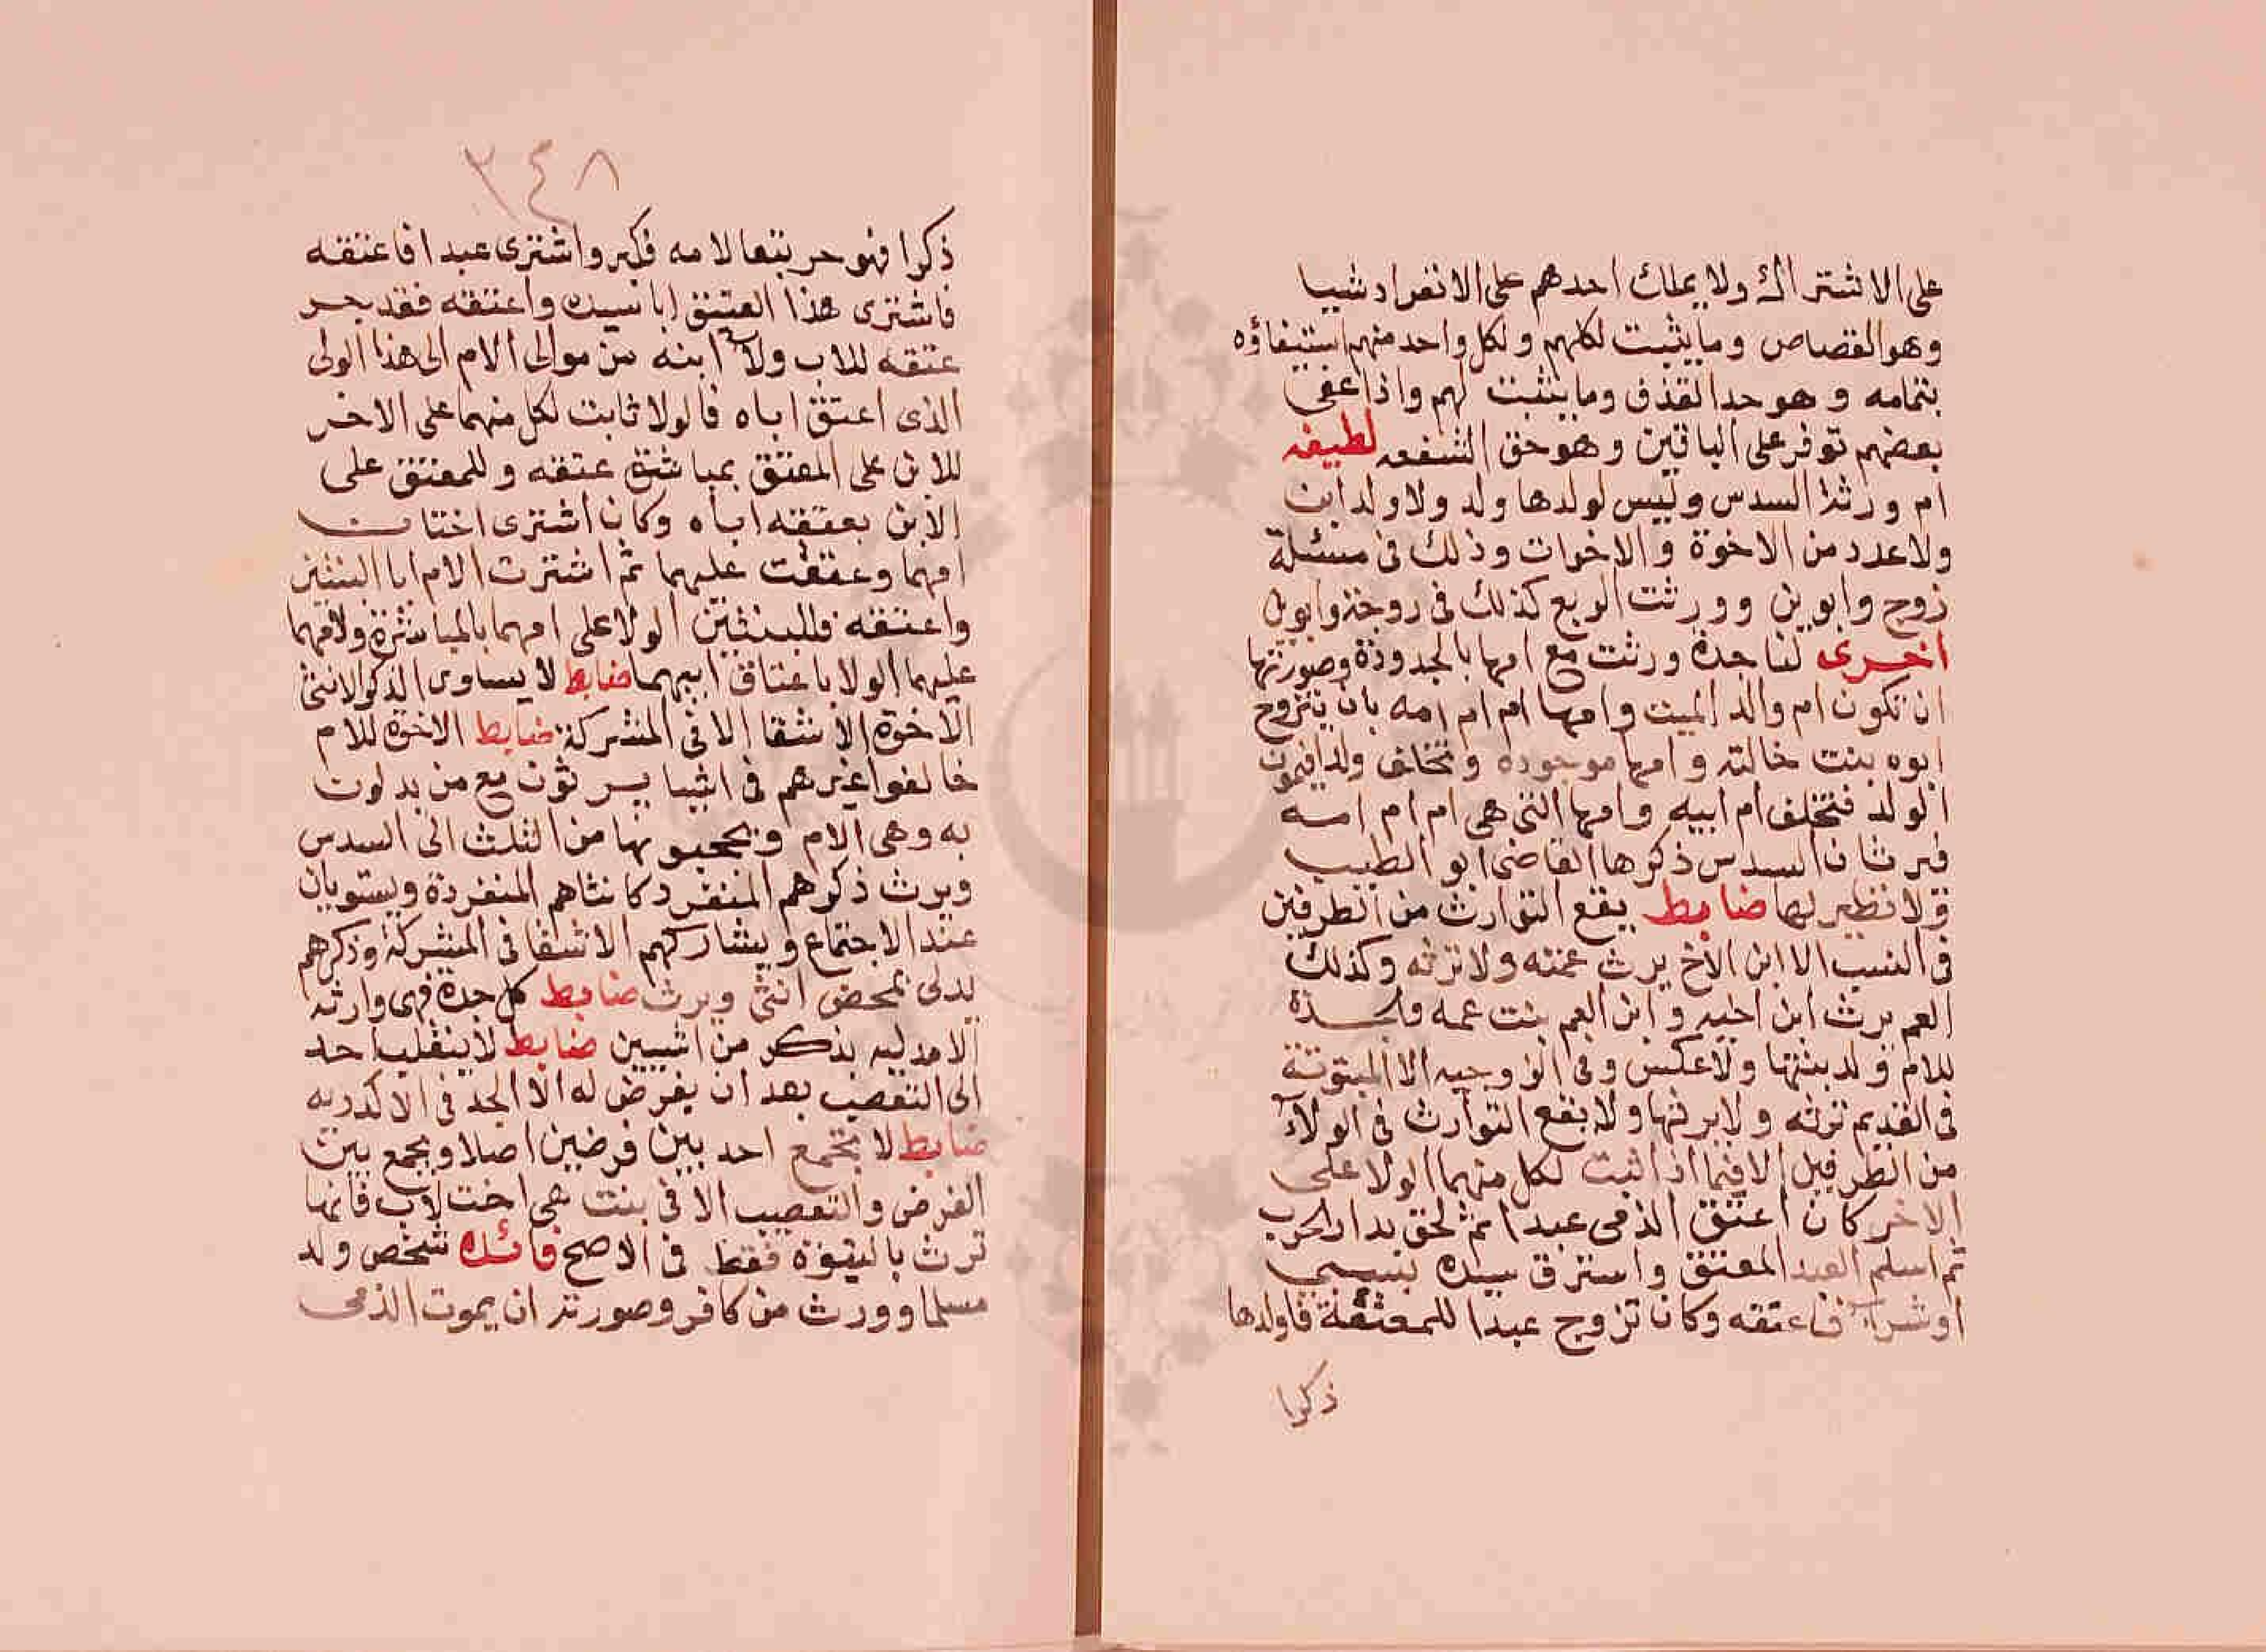 على الاشتراك ولا يملك احدهم على الانفراد شيا
وهو القصاص وما يثبت لكلهم ولكل واحد منهم استيفاؤه
بتمامه و هو حد القذف وما يثبت لهم واذا عفى
بعضهم توفر على الباقين وهو حق الشفعه لطيفه
ام ورثت السدس وليس لولدها ولد ولا ولد ابن
ولا عدد من الاخوة والاخوات وذلك فى مسئلة
زوج وابوين وورثت الربع كذلك فى زوجة وابوين
اخرى لنا جدة ورثت مع امها بالجدودة وصورتها
ان تكون ام والد الميت وامها ام ام امه بان يتزوج
ابوه بنت خالته وامها موجودة وتخلف ولدا فيموت
الولد فتخلف ام ابيه وامها التى هى ام ام امه
فيرثان السدس ذكرها القاضى ابو الطيب
ولا نظير لها ضابط يقع التوارث من الطرفين
فى النسب الا ابن الاخ يرث عمته ولا ترثه وكذلك
العم يرث ابن اخيه وابن العم بنت عمه والجدة
للام ولد بنتها ولا عكس وفى الزوجيه الا المبتوتة
فى القديم ترثه ولا يرثها ولا يقع التوارث فى الولآء
من الطرفين الا فيما اذا ثبت لكل منهما الولا على
الاخر كان اعتق الذمى عبدا ثم لحق بدار الحرب
ثم اسلم العبد المعتق واسترق سيده بسبى
او شرآء فاعتقه وكان تزوج عبدا للمعتقة فاولدها
ذكرا
٢٤٨
ذكرا فهو حر بتعا لامه فكبر واشترى عبدا فاعتقه
فاشترى هذا العتيق ابا سيده واعتقه فقد جر
عتقه للاب ولآء ابنه من موالى الام الى هذا الولى
الذى اعتق اباه فالولا ثابت لكل منهما على الاخر
للابن على المعتق بمباشرة عتقه وللمعتق على
الابن بعتقه اباه وكان اشترى اختان
امهما وعتقت عليهما ثم اشترت الام ابا البنتين
واعتقه فللبنتين الولا على امهما بالمباشرة ولامهما
عليهما الولا باعتاق ابيهما ضابط لا يساوى الذكر الانثى
الاخوة الاشقا الا فى المشركة ضابط الاخوة للام
خالفوا غيرهم فى اشيا يرثون مع من يدلون
به وهى الام ويحجبونها من الثلث الى السدس
ويرث ذكرهم المنفرد كانثاهم المنفردة ويستويان
عند الاجتماع ويشاركهم الاشقا فى المشركة وذكرهم
يدلى بمحض انثى ويرث ضابط كل جدة فهى وارثه
الا مدليه بذكر من انثيين ضابط لا ينقلب احد
الى التعصيب بعد ان يفرض له الا الجد فى الاكدريه
ضابط لا يجمع احد بين فرضين اصلا ويجمع بين
الفرض والتعصيب الا فى بنت هى اخت لاب فانها
ترث بالبنوة فقط فى الاصح فائده شخص ولد
مسلما وورث من كافر وصورته ان يموت الذمى